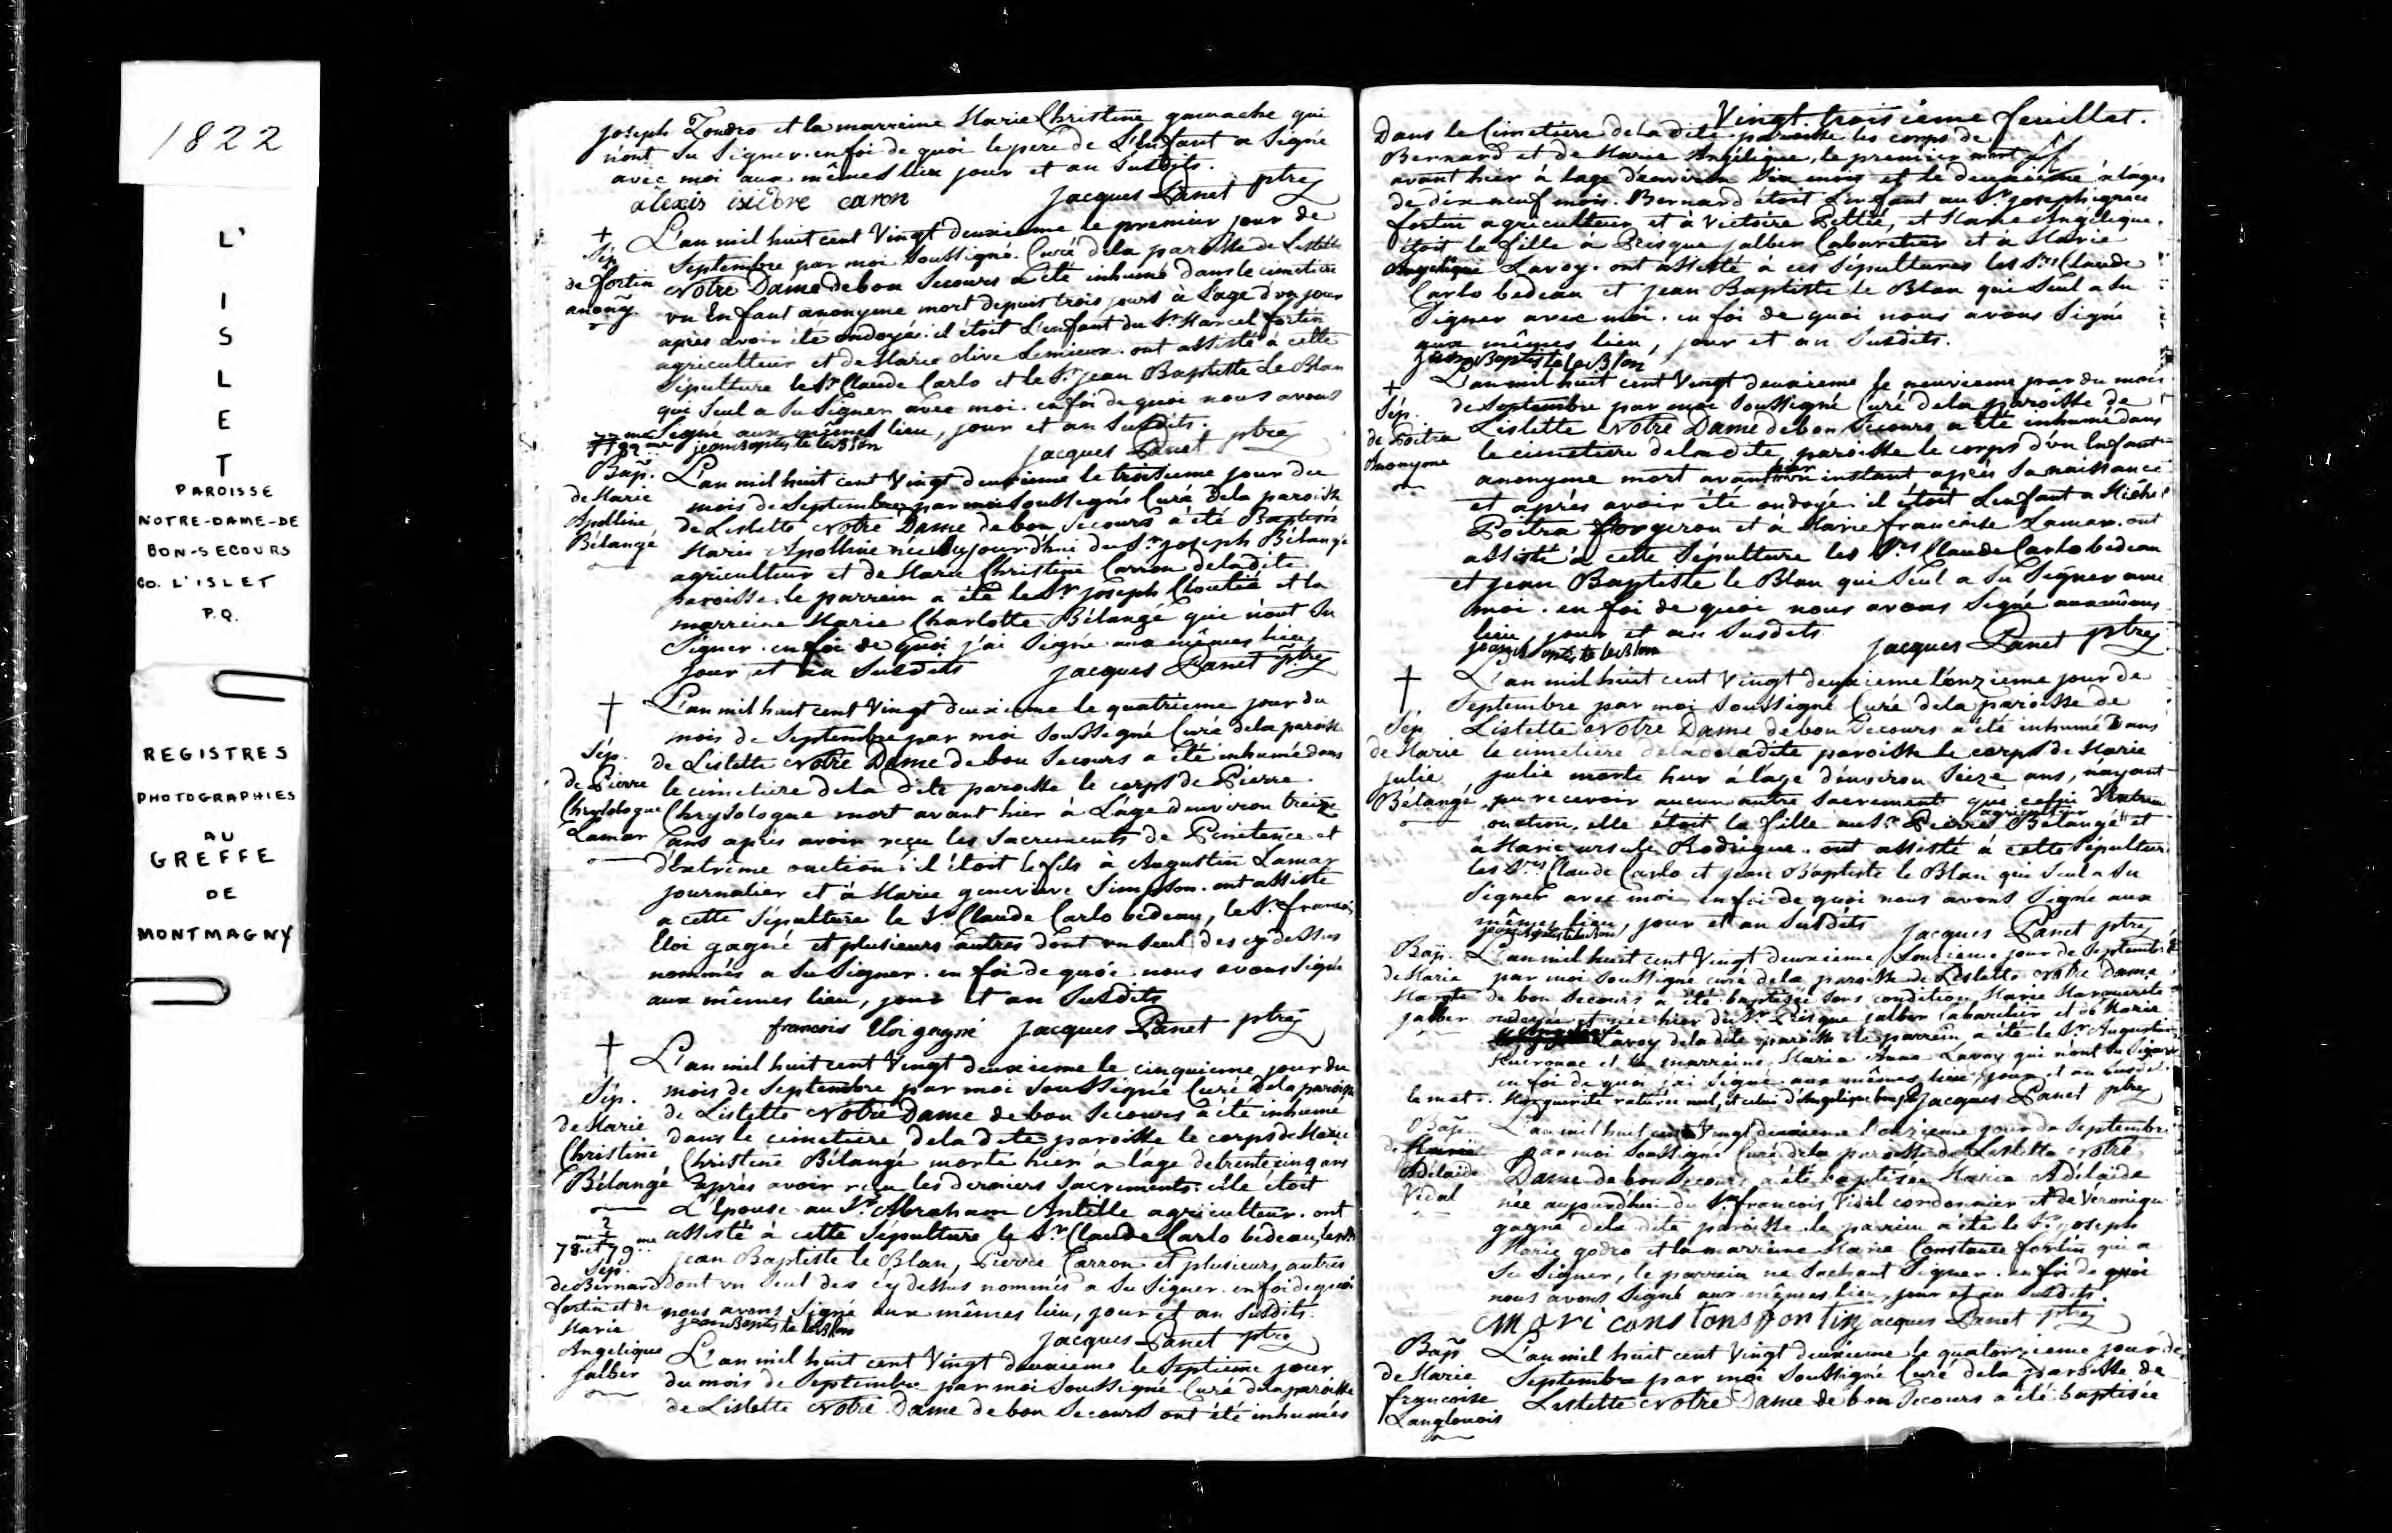 1822
L'
I
S
L
E
T
PAROISSE
NOTRE-DAME-DE
BON-SECOURS
CO. L'ISLET
P.Q.
REGISTRES
PHOTOGRAPHIES
AU
GREFFE
DE
MONTMAGNY
joseph et la marreine Marie Christine gamache qui
n'ont su signer. en foi de quoi le pere de L'enfant a signé
avec moi aux mêmes lieu jour et an susdits.
alexis isidore caron Jacques Panet ptre
+ L'an mil huit cent Vingt deuxieme le premier jour de
Sép. Septembre par moi soussigné Curé dela paroisse de Lislette
de fortin Notre Dame de bon Secours a été inhumé dans le cimetiere
anony. un Enfant anonyme mort depuis trois jours à l'age d'un jour
après avoir été ondoyé: il étoit L'enfant du Sr Marcel fortin
agriculteur et de Marie olive Lemieux. ont assisté à cette
Sépulture le Sr Claude Carlo et le Sr jean Baptiste Le Blan
qui seul a su signer avec moi. en foi de quoi nous avons
signé aux mêmes lieu, jour et an susdits.
jean Baptiste leblon Jacques Panet ptre
Bap. L'an mil huit cent Vingt deuxieme le troisieme jour du
de Marie mois de Septembre par moi soussigné Curé dela paroisse
Apolline de Lislette Notre Dame de bon Secours a été Baptisée
Bélangé Marie Apolline née aujourd'hui du Sr joseph Bélangé
agriculteur et de Marie Christine Carron deladite
paroisse. le parrein a été le Sr joseph Cloutié et la
marreine Marie Charlotte Bélangé qui n'ont su
signer. en foi de quoi j'ai signé aux mêmes lieu
jour et an susdits Jacques Panet ptre
+ L'an mil huit cent Vingt deuxieme le quatrieme jour du
mois de Septembre par moi soussigné Curé dela paroisse
Sép. de Lislette Notre Dame de bon Secours a été inhumé dans
de Pierre le cimetiere dela dite paroisse le corps de Pierre
Chrysologue Chrysologue mort avant hier à L'âge d'environ treize
Lamar ans après avoir reçu les Sacrements de Pénitence et
d'extrême onction: il étoit le fils à Augustin Lamar
journalier et à Marie genevieve Simpson. ont assisté
a cette Sépulture le Sr Claude Carlo bedeau, le Sr francois
Eloi gagné et plusieurs autres dont un seul des cy dessus
nommés a su signer. en foi de quoi nous avons signé
aux mêmes lieu, jour et an susdits
francois Eloi gagné Jacques Panet ptre
+ L'an mil huit cent Vingt deuxieme le cinquieme jour du
Sép. mois de Septembre par moi soussigné Curé dela paroisse
de Lislette Notre Dame de bon Secours a été inhumé
de Marie dans le cimetiere dela dite paroisse le corps de Marie
Christine Christine Bélangé morte hier à l'age de trente cinq ans
Bélangé après avoir reçu les derniers Sacrements: elle étoit
L'Epouse au Sr Abraham Antille agriculteur. ont
assisté à cette Sépulture le Sr Claude Carlo bedeau, le Sr
78 et 79me jean Baptiste le Blan, Pierre Carron et plusieurs autres
Sép.
de Bernard dont un seul des cy dessus nommés a su signer. en foi de quoi
fortin et de nous avons signé aux mêmes lieu, jour et an susdits.
Marie jean Baptiste leblon Jacques Panet ptre
Angelique L'an mil huit cent Vingt deuxieme le septieme jour
jalber du mois de Septembre par moi soussigné Curé dela paroisse
de Lislette Notre Dame de bon Secours ont été inhumés
Vingt. troisieme feuillet.
Dans le Cimetiere dela dite paroisse les corps de
Bernard et de Marie Angélique, le premier mort
avant hier à lage d'environ dix mois et le deuxieme à l'age
de dix neuf mois. Bernard étoit L'enfant au Sr joseph ignace
fortin agriculteur et à Victoire Pettié, et Marie Angélique
étoit la fille à Prisque jalber Cabaretier et à Marie
Angélique Lavoy. ont assisté à ces Sépultures les Srs Claude
Carlo bedeau et jean Baptiste le Blan qui seul a su
signer avec moi. en foi de quoi nous avons signé
aux mêmes lieu, jour et an susdits.
jean Baptiste leblon
+ L'an mil huit cent Vingt deuxieme le neuvieme jour du mois
Sép. de Septembre par moi soussigné Curé dela paroisse de
de Poitra Lislette Notre Dame de bon Secours a été inhumé dans
Anonyme le cimetiere deladite paroisse le corps d'un Enfant
anonyme mort avant hier un instant après sa naissance
et après avoir été ondoyé: il étoit L'enfant a Michel
Poitra forgeron et a Marie francoise Lamar. ont
assisté à cette Sépulture les Srs Claude Carlo bedeau
et jean Baptiste le Blan qui seul a su signer avec
moi. en foi de quoi nous avons signé aux mêmes
lieu, jour et an susdits
jean Baptiste leblon Jacques Panet ptre
+ L'an mil huit cent Vingt deuxieme l'onzieme jour de
Septembre par moi soussigné Curé dela paroisse de
Sép. Lislette Notre Dame de bon Secours a été inhumé Dans
de Marie le cimetiere de ladite paroisse le corps de Marie
julie julie morte hier à l'âge d'environ seize ans, n'ayant
Bélangé pu recevoir aucun autre sacrement que celui d'extreme
onction. elle étoit la fille au Sr Pierre Bélangé agriculteur et
à Marie ursule Rodrigue. ont assisté a cette Sépulture
les Srs Claude Carlo et jean Baptiste le Blan qui seul a su
signer avec moi en foi de quoi nous avons signé aux
mêmes lieu, jour et an susdits
jean Baptiste leblon Jacques Panet ptre
Bap. L'an mil huit cent Vingt deuxieme jour de Septembre
de Marie par moi soussigné curé dela paroisse de Lislette Notre Dame
Margte de bon Secours a été baptisée sous condition Marie Marguerite
jalber ondoyée et née hier du Sr Prisque jalber Cabaretier et de Marie
Lavoy dela dite paroisse le parrein a été le Sr Augustin
et la marreine Marie Anne Lavoy qui n'ont su signer
en foi de quoi j'ai signé aux mêmes lieu, jour et an susdits.
le mot Marguerite raturé nul, et celui d'Angelique bon Jacques Panet ptre
Bap. L'an mil huit cent Vingt deuxieme jour de Septembre
de Marie par moi soussigné Curé dela paroisse de Lislette Notre
Adelaide Dame de bon Secours a été baptisée Marie Adélaïde
Vidal née aujourd'hui du Sr francois Vidal cordonnier et de Véronique
gagné dela dite paroisse. le parrein a été le Sr joseph
Marie godro et la marreine Marie Constance fortin qui a
su signer, le parrein ne sachant signer. en foi de quoi
nous avons signé aux mêmes lieu, jour et an susdits.
Mari constons fortin Jacques Panet ptre
Bap. L'an mil huit cent Vingt deuxieme le quatorzieme jour de
de Marie Septembre par moi soussigné Curé dela paroisse de
francoise Lislette Notre Dame de bon Secours a été baptisée
Langlouois